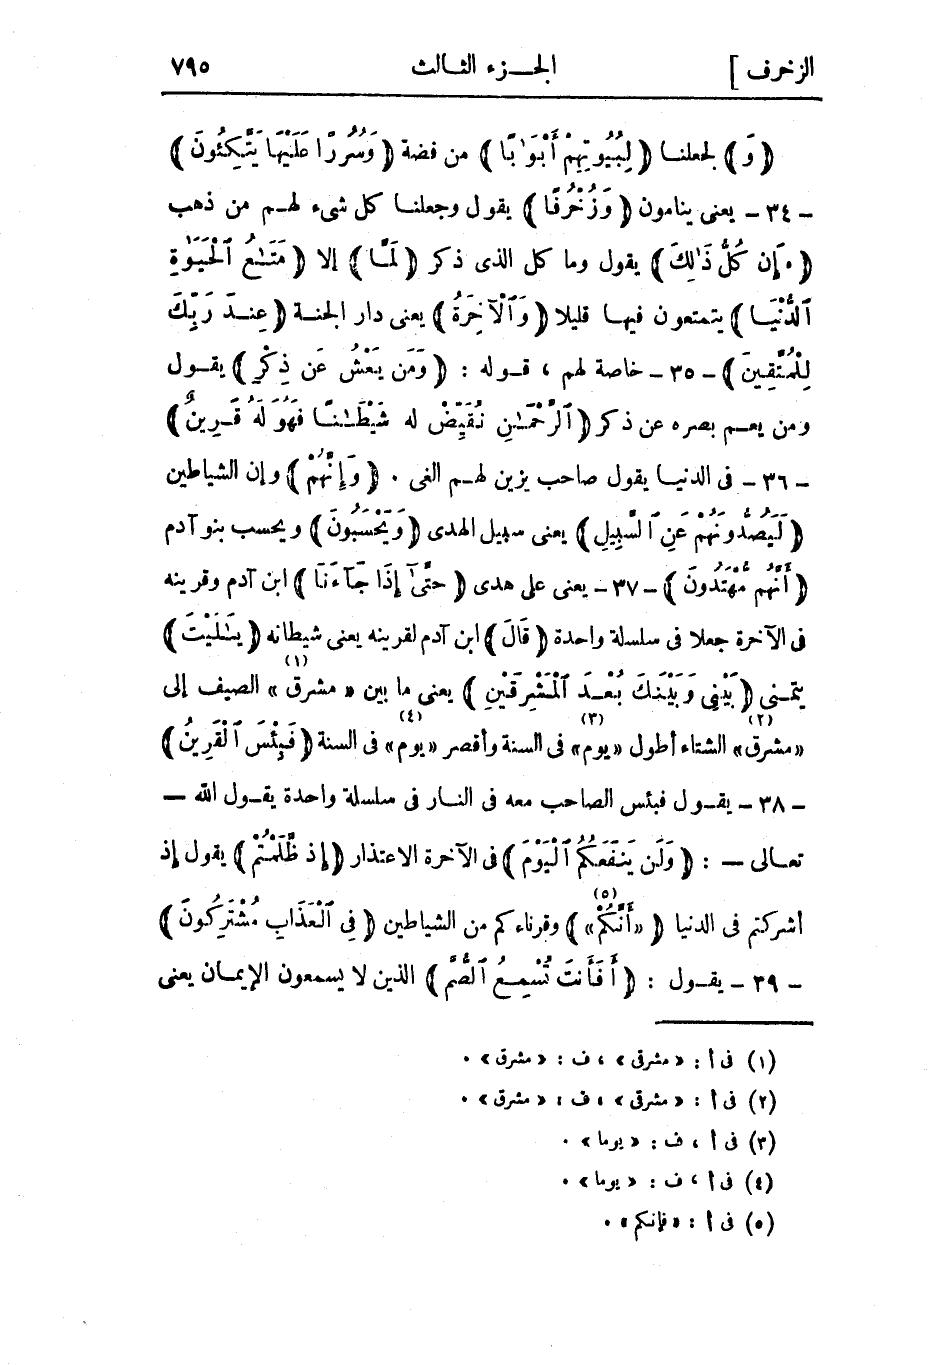 الزخرف ] الجـــزء الثـالث ٧٩٥
﴿ وَ ﴾ لجعلنـا ﴿ لِبُيُوتِهِمْ أَبْوَٰبًا ﴾ من فضة ﴿ وَسُرُرًا عَلَيْهَا يَتَّكِئُونَ ﴾
ـ ٣٤ ـ يعنى ينامون ﴿ وَزُخْرُفًا ﴾ يقول وجعلنـا كل شىء لهـم من ذهب
﴿ وَإِن كُلُّ ذَٰلِكَ ﴾ يقول وما كل الذى ذكر ﴿ لَمَّـا ﴾ إلا ﴿ مَتَـٰعُ ٱلْحَيَوٰةِ
ٱلدُّنْيَـا ﴾ يتمتعون فيهـا قليلا ﴿ وَٱلْآخِرَةُ ﴾ يعنى دار الجنـة ﴿ عِنـدَ رَبِّكَ
لِلْمُتَّقِينَ ﴾ ـ ٣٥ ـ خاصة لهم ، قـوله : ﴿ وَمَن يَعْشُ عَن ذِكْرِ ﴾ يقـول
ومن يعـم بصره عن ذكر ﴿ ٱلرَّحْمَـٰنِ نُقَيِّضْ له شَيْطَـٰنًـا فَهُوَ لَهُ قَـرِينٌ ﴾
ـ ٣٦ ـ فى الدنيـا يقول صاحب يزين لهـم الغى . ﴿ وَإِنَّهُمْ ﴾ وإن الشياطين
﴿ لَيَصُدُّونَهُمْ عَنِ ٱلسَّبِيلِ ﴾ يعنى سبيل الهدى ﴿ وَيَحْسَبُونَ ﴾ ويحسب بنو آدم
﴿ أَنَّهُم مُّهْتَدُونَ ﴾ ـ ٣٧ ـ يعنى على هدى ﴿ حَتَّىٰٓ إِذَا جَآءَنَا ﴾ ابن آدم وقرينه
فى الآخرة جعلا فى سلسلة واحدة ﴿ قَالَ ﴾ ابن آدم لقرينه يعنى شيطانه ﴿ يَـٰلَيْتَ ﴾
يتمـنى ﴿ بَيْنِى وَبَيْنَـكَ بُعْـدَ ٱلْمَشْرِقَيْنِ ﴾ يعنى ما بين « مشرق » (١) الصيف إلى
« مشرق» (٢) الشتاء أطول «يوم» (٣) فى السنة وأقصر «يوم» (٤) فى السنة ﴿ فَبِئْسَ ٱلْقَرِينُ ﴾
ـ ٣٨ ـ يقـول فبئس الصاحب معه فى النار فى سلسلة واحدة يقـول الله —
تعـالى — : ﴿ وَلَن يَنفَعَكُمُ ٱلْيَوْمَ ﴾ فى الآخرة الاعتذار ﴿ إِذ ظَّلَمْتُمْ ﴾ يقول إذ
أشركتم فى الدنيا ﴿ «أَنَّكُمْ» (٥) ﴾ وقرناءكم من الشياطين ﴿ فِى ٱلْعَذَابِ مُشْتَرِكُونَ ﴾
ـ ٣٩ ـ يقـول : ﴿ أَفَأَنتَ تُسْمِـعُ ٱلصُّمَّ ﴾ الذين لا يسمعون الإيمـان يعنى
(١) فى أ : « مشرقى » ، ف : « مشرق » .
(٢) فى أ : « مشرقى » ، ف : « مشرق » .
(٣) فى أ ، ف : « يوما » .
(٤) فى أ ، ف : « يوما » .
(٥) فى أ : « فإنكم » .